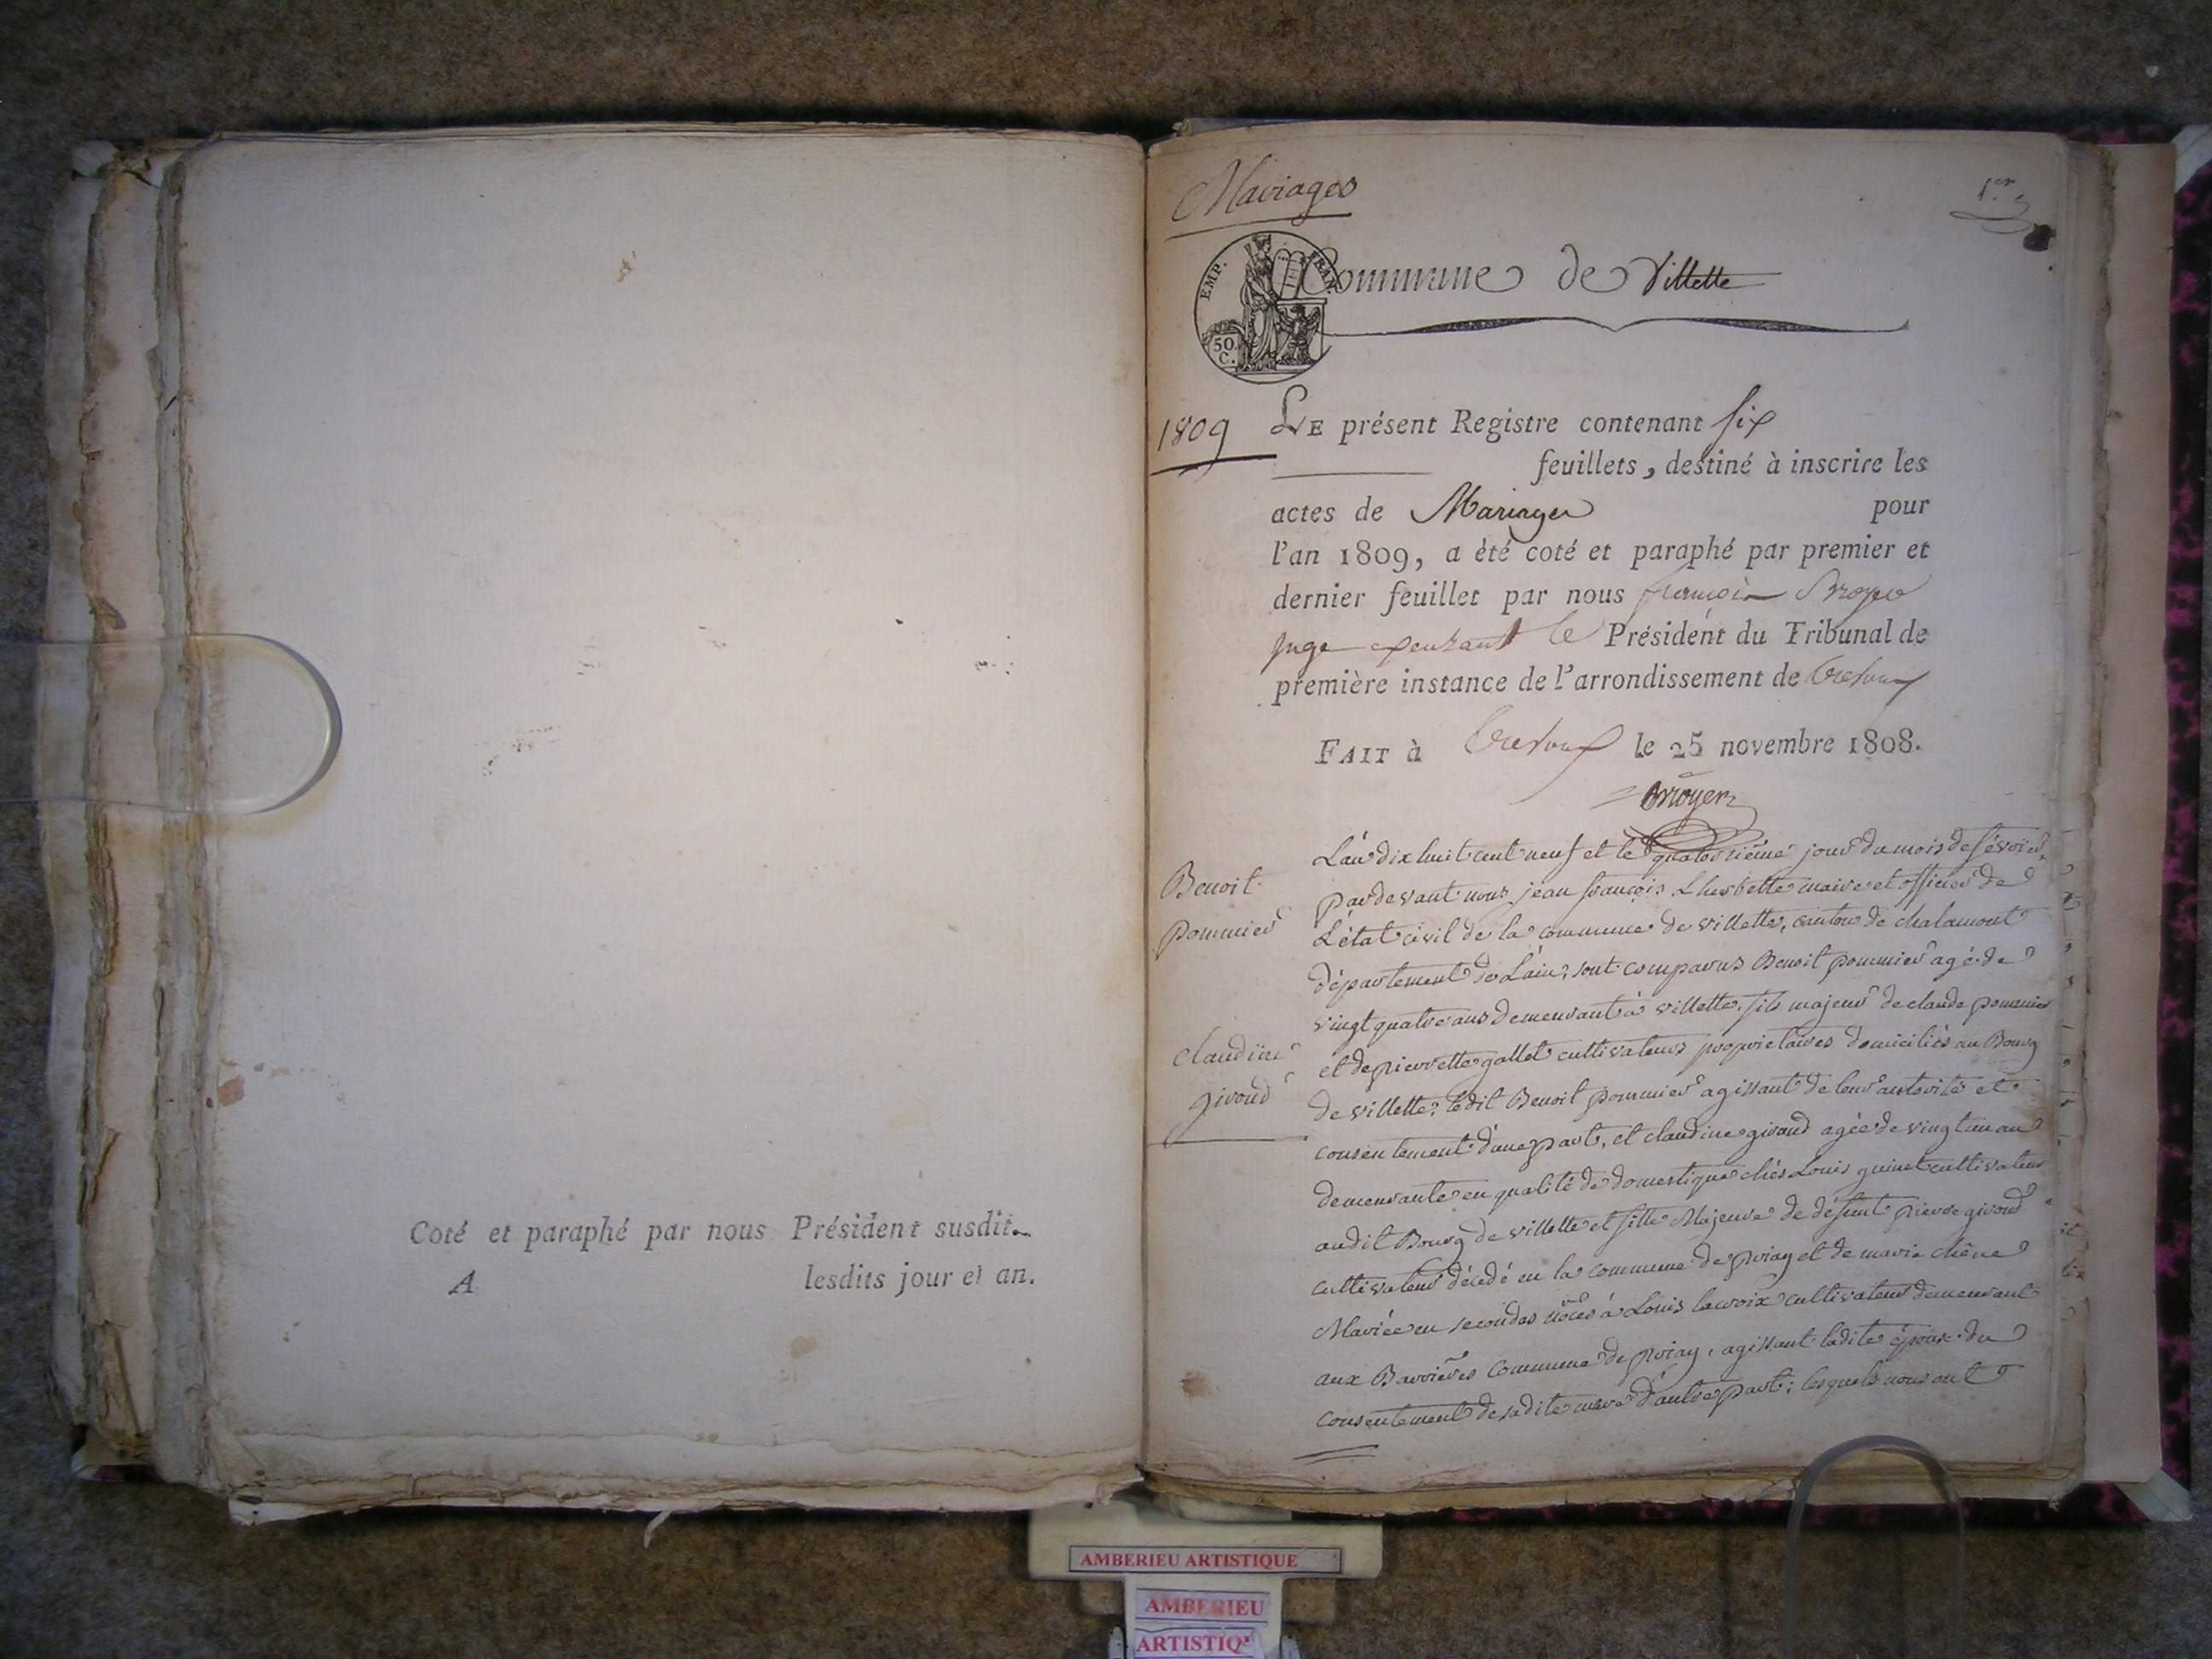 Coté et paraphé par nous Président susdit.
A lesdits jour et an.
Mariages
1er
EMP. FRAN.
50 C.
Commune de Villette
1809
LE présent Registre contenant six
feuillets, destiné à inscrire les
actes de Mariages pour
l'an 1809, a été coté et paraphé par premier et
dernier feuillet par nous françois Broyer
juge le Président du Tribunal de
première instance de l'arrondissement de Trevoux
FAIT à Trevoux le 25 novembre 1808.
Broyer
Benoit
pommier
claudine
giroud
L'an dix huit cent neuf et le quatorzième jour du mois de février,
pardevant nous jean françois Lherbette maire et officier de
L'état civil de la commune de villette, canton de chalamont
département de L'ain, sont comparus Benoit pommier agé de
vingt quatre ans demeurant à villette, fils majeur de claude pommier
et de pierrette gallet cultivateurs propriétaires domiciliés au Bourg
de villette, ledit Benoit pommier agissant de leur autorité et
consentement d'une part, et claudine giroud agée de vingt un an
demeurante en qualité de domestique chés Louis guinet cultivateur
audit Bourg de villette et fille Majeure de défunt pierre giroud
cultivateur décédé en la commune de priay et de marie chêne
Mariée en secondes nôces à Louis lacroix cultivateur demeurant
aux Barrières commune de priay, agissant ladite épouse du
consentement de sadite mère d'autre part; lesquels nous ont
AMBERIEU ARTISTIQUE
AMBERIEU
ARTISTIQ